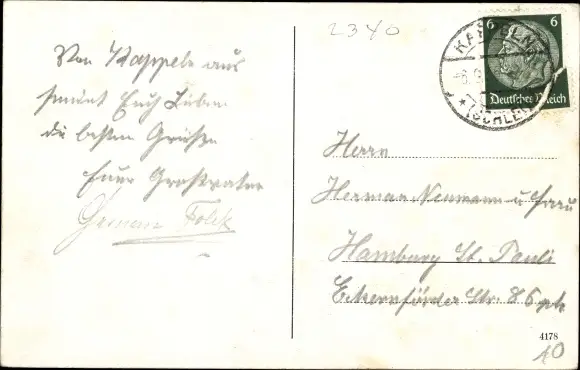 2340
Von Kappeln aus
sendet Euch Lieben
die besten Grüße
Euer Großvater
Folck
KAPPELN
(SCHLEI)
6 6
Deutsches Reich
Herrn
Herman Neumann u Frau
Hamburg St. Pauli
Eckernförder Str. 86
4178
10